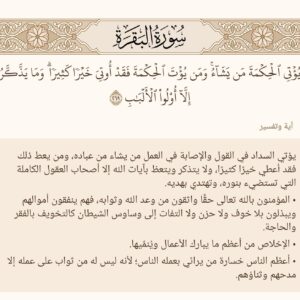 سُورَةُ البَقَرَةِ
يُؤْتِي ٱلْحِكْمَةَ مَن يَشَآءُ ۚ وَمَن يُؤْتَ ٱلْحِكْمَةَ فَقَدْ أُوتِيَ خَيْرًا كَثِيرًا ۗ وَمَا يَذَّكَّرُ
إِلَّآ أُو۟لُوا۟ ٱلْأَلْبَٰبِ ٢٦٩
آية وتفسير
يؤتي السداد في القول والإصابة في العمل من يشاء من عباده، ومن يعط ذلك
فقد أعطي خيرًا كثيرًا، ولا يتذكر ويتعظ بآيات الله إلا أصحاب العقول الكاملة
التي تستضيء بنوره، وتهتدي بهديه.
• المؤمنون بالله تعالى حقًا واثقون من وعد الله وثوابه، فهم ينفقون أموالهم
ويبذلون بلا خوف ولا حزن ولا التفات إلى وساوس الشيطان كالتخويف بالفقر
والحاجة.
• الإخلاص من أعظم ما يبارك الأعمال وينميها.
• أعظم الناس خسارة من يرائي بعمله الناس؛ لأنه ليس له من ثواب على عمله إلا
مدحهم وثناؤهم.